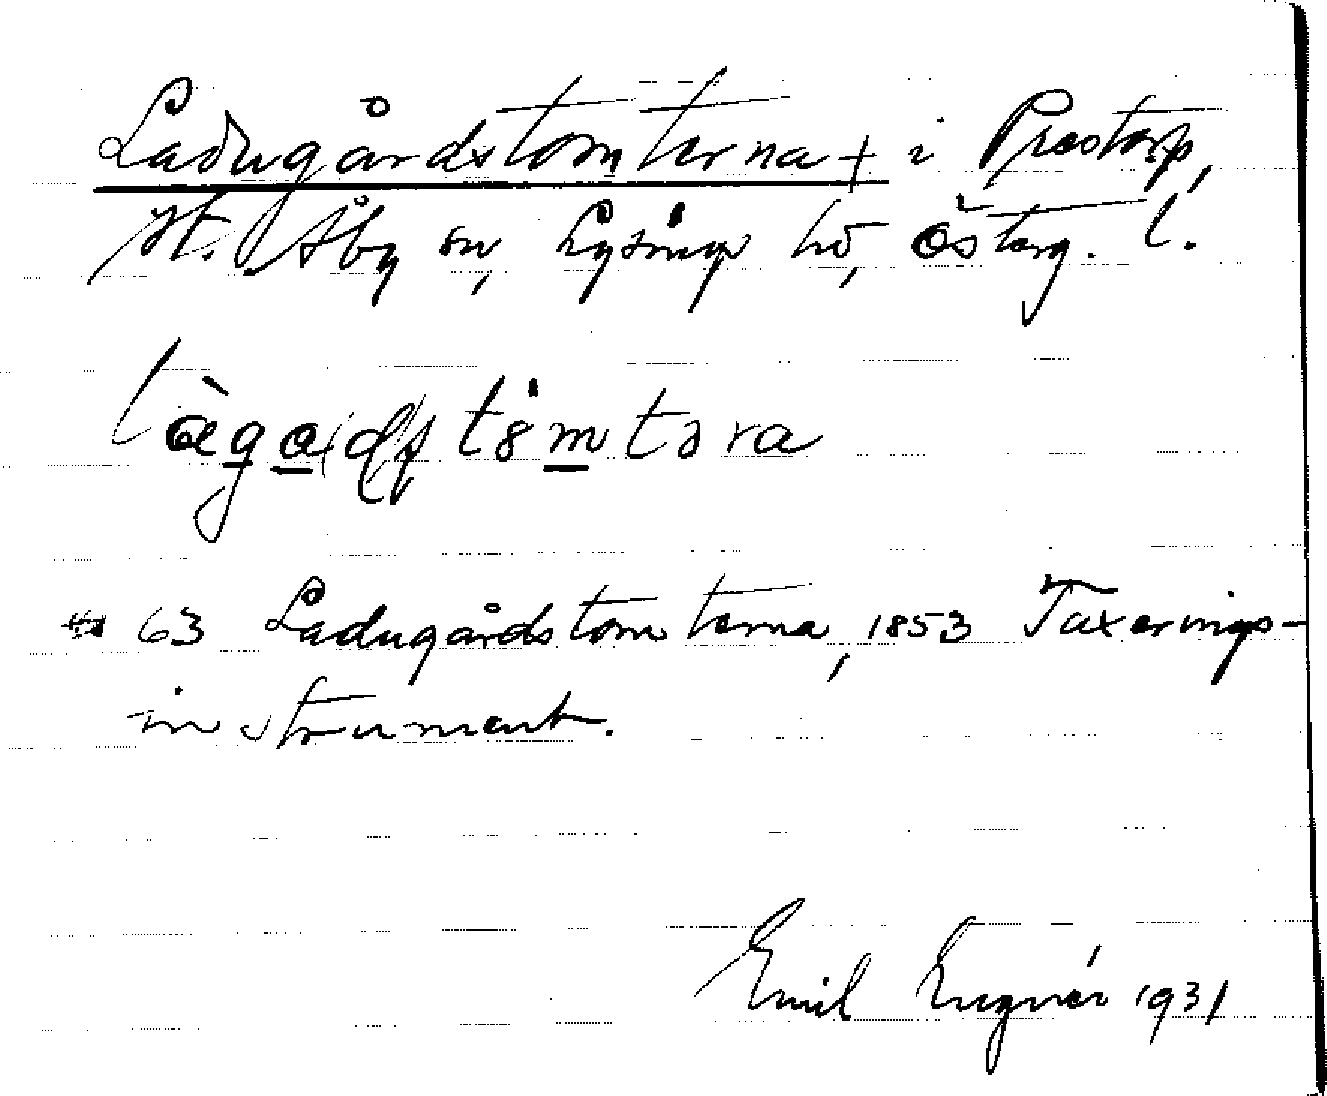 Ladugårdstomterna + i Prestorp,
V. Åby sn, Lysings hd, Österg. l.
63 Ladugårdstomterna, 1853 Taxerings-
instrument.
Emil Lugnér 1931